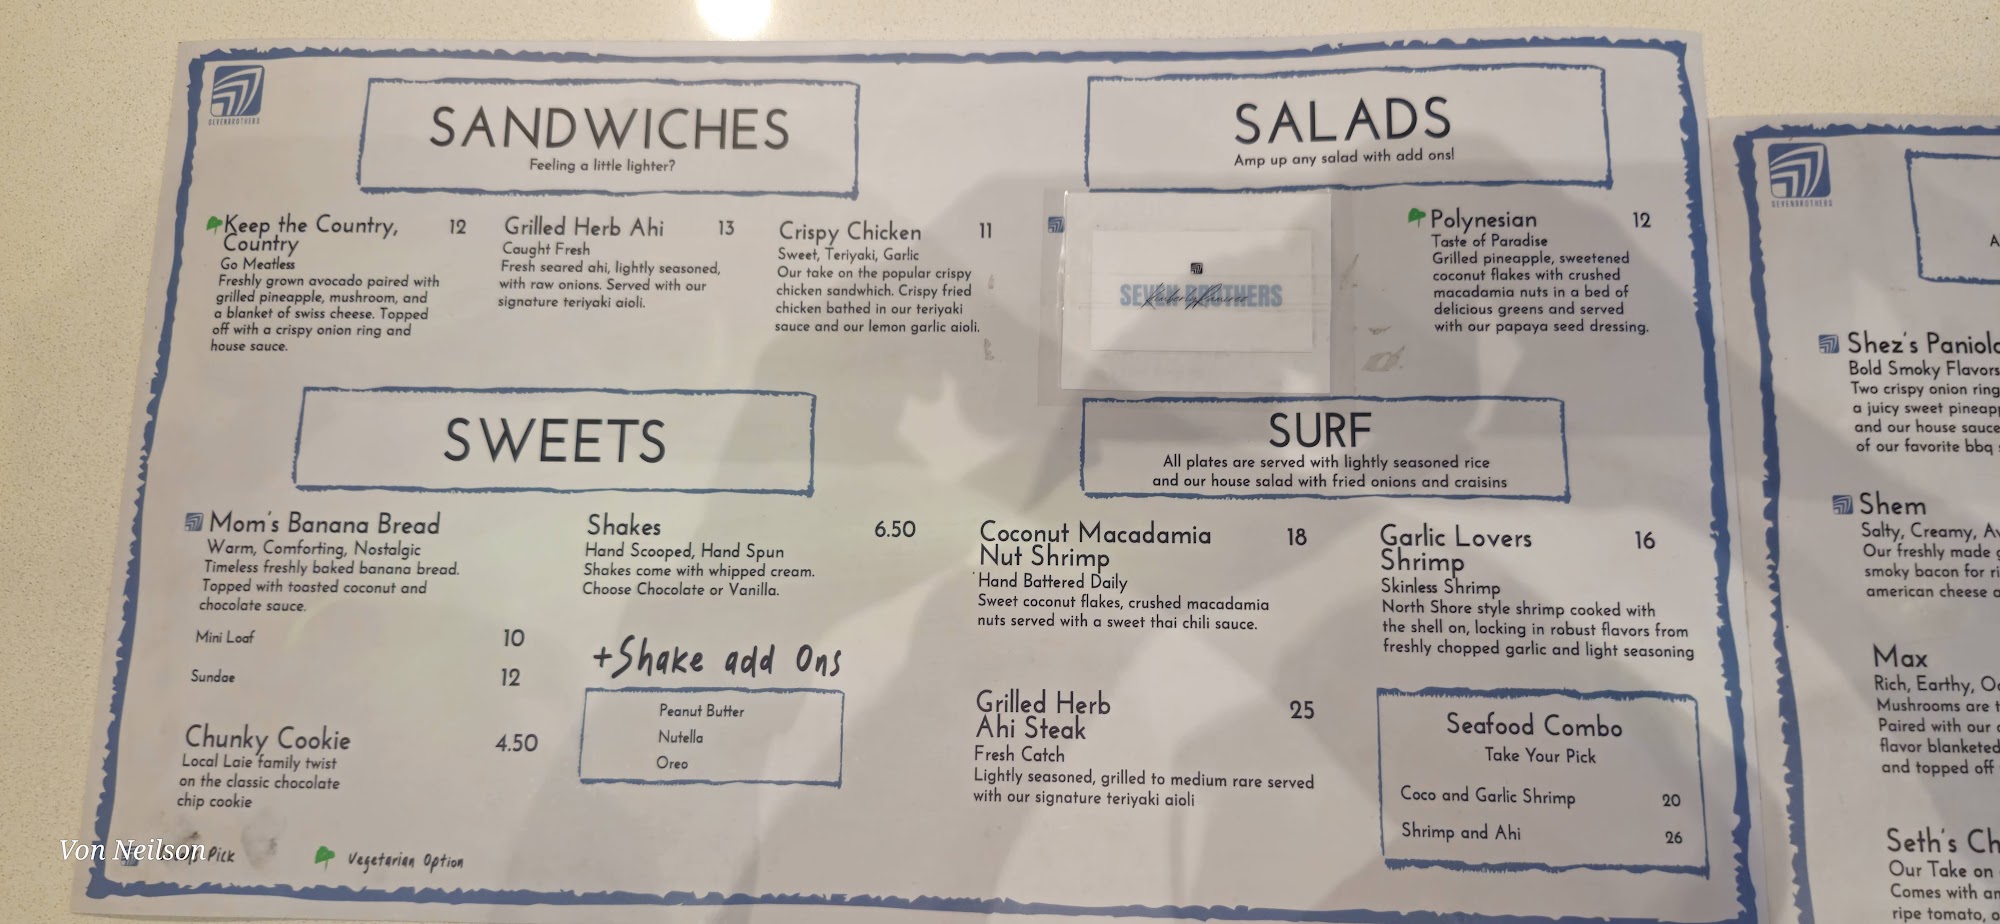 SEVENBROTHERS
SANDWICHES
Feeling a little lighter?
Keep the Country,
Country
12
Go Meatless
Freshly grown avocado paired with
grilled pineapple, mushroom, and
a blanket of swiss cheese. Topped
off with a crispy onion ring and
house sauce.
Grilled Herb Ahi 13
Caught Fresh
Fresh seared ahi, lightly seasoned,
with raw onions. Served with our
signature teriyaki aioli.
Crispy Chicken 11
Sweet, Teriyaki, Garlic
Our take on the popular crispy
chicken sandwhich. Crispy fried
chicken bathed in our teriyaki
sauce and our lemon garlic aioli.
SALADS
Amp up any salad with add ons!
SEVEN BROTHERS
Polynesian 12
Taste of Paradise
Grilled pineapple, sweetened
coconut flakes with crushed
macadamia nuts in a bed of
delicious greens and served
with our papaya seed dressing.
SWEETS
Mom's Banana Bread
Warm, Comforting, Nostalgic
Timeless freshly baked banana bread.
Topped with toasted coconut and
chocolate sauce.
Mini Loaf 10
Sundae 12
Chunky Cookie 4.50
Local Laie family twist
on the classic chocolate
chip cookie
Shakes 6.50
Hand Scooped, Hand Spun
Shakes come with whipped cream.
Choose Chocolate or Vanilla.
+Shake add Ons
Peanut Butter
Nutella
Oreo
SURF
All plates are served with lightly seasoned rice
and our house salad with fried onions and craisins
Coconut Macadamia
Nut Shrimp
18
Hand Battered Daily
Sweet coconut flakes, crushed macadamia
nuts served with a sweet thai chili sauce.
Garlic Lovers
Shrimp
16
Skinless Shrimp
North Shore style shrimp cooked with
the shell on, locking in robust flavors from
freshly chopped garlic and light seasoning
Grilled Herb
Ahi Steak
25
Fresh Catch
Lightly seasoned, grilled to medium rare served
with our signature teriyaki aioli
Seafood Combo
Take Your Pick
Coco and Garlic Shrimp 20
Shrimp and Ahi 26
Von Neilson
Pick
Vegetarian Option
SEVENBROTHERS
A
Shez's Paniolo
Bold Smoky Flavors
Two crispy onion ring
a juicy sweet pineapp
and our house sauce
of our favorite bbq
Shem
Salty, Creamy, Av
Our freshly made
smoky bacon for ri
american cheese a
Max
Rich, Earthy, O
Mushrooms are t
Paired with our
flavor blanketed
and topped off
Seth's Ch
Our Take on
Comes with an
ripe tomato, a